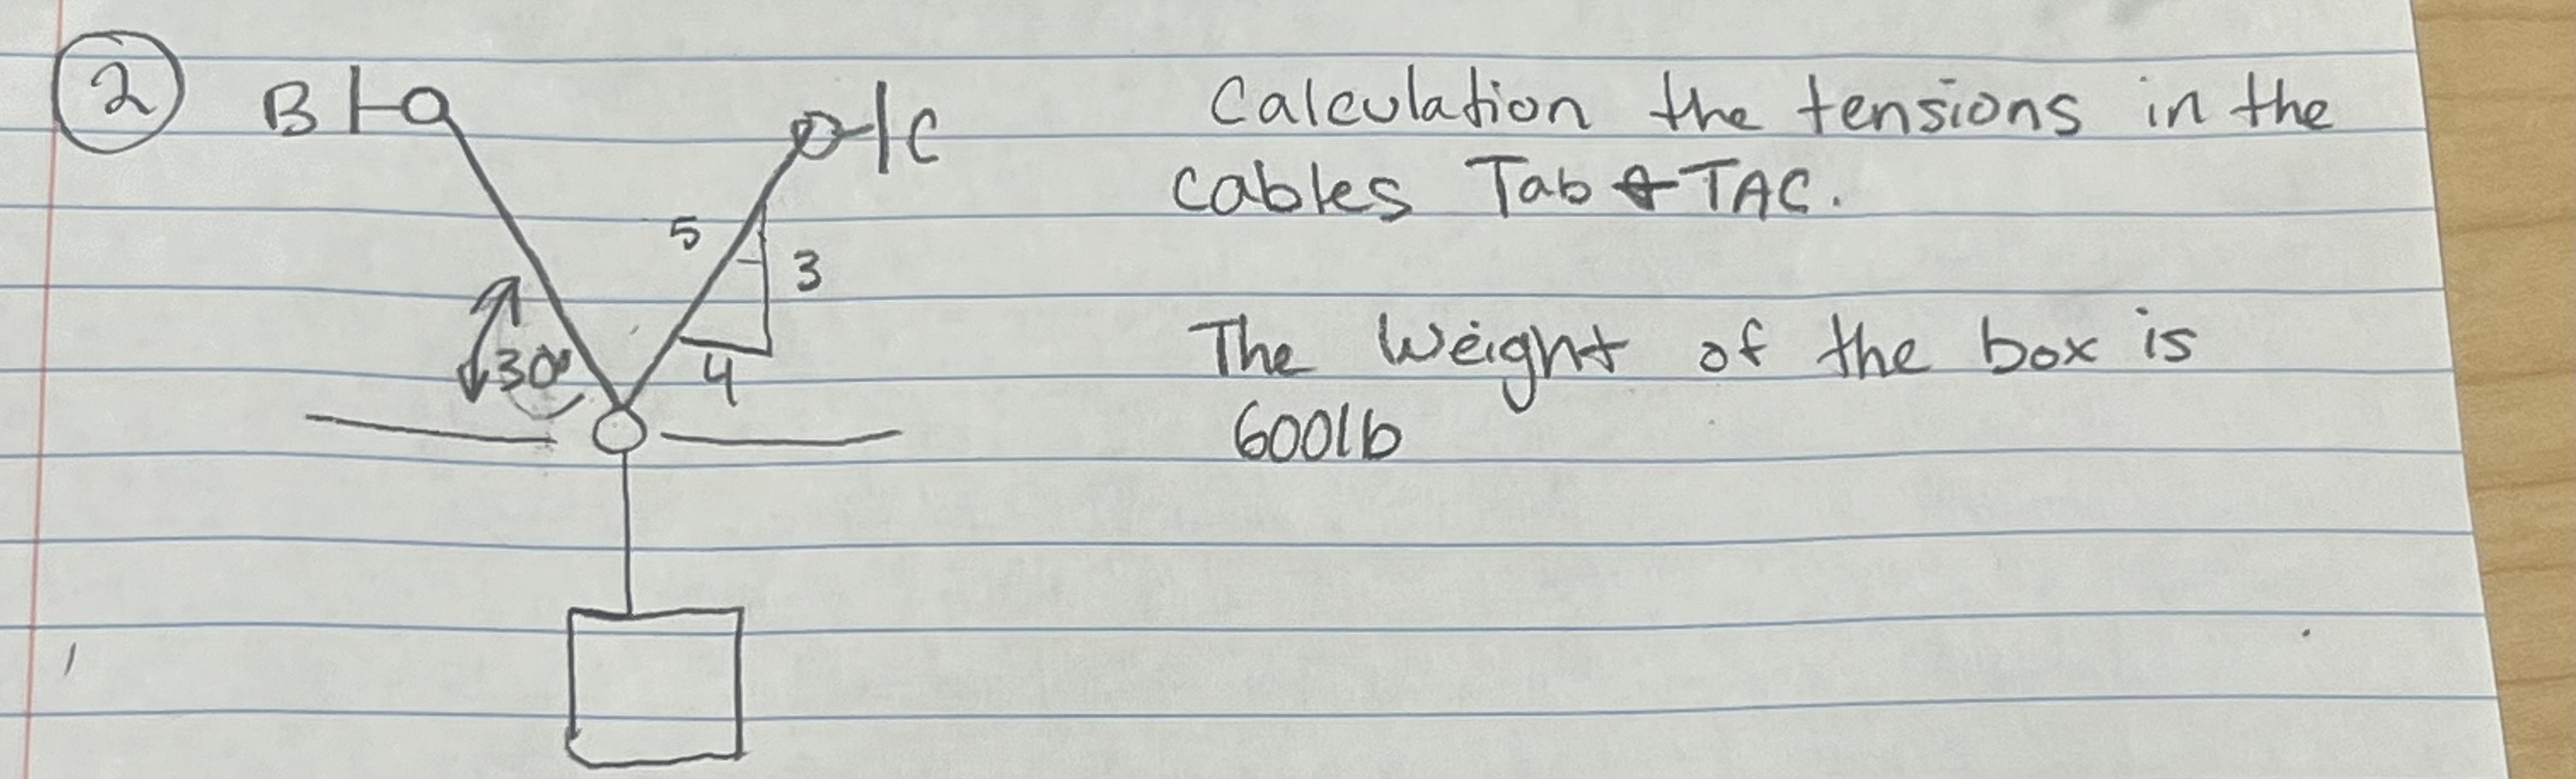 2
B C
Calculation the tensions in the
cables Tab & TAC.
5
3
30°
4
The Weight of the box is
600lb